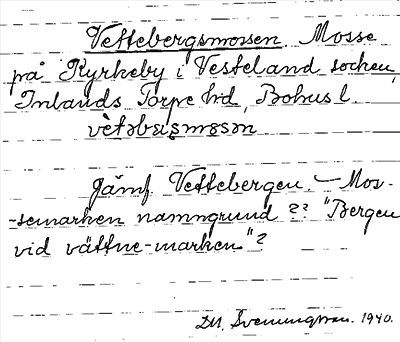 Vettebergsmossen. Mosse
på Kyrkeby i Vesteland socken,
Inlands Torpe hd, Bohus l.
vètəbæ̀rsmɷsən
Jämf. Vettebergen. — Mos-
-semarken namngrund ?? "Bergen
vid vättne-marken"?
D. Sveningsson. 1940.